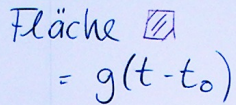 Fläche
= g(t-t₀)